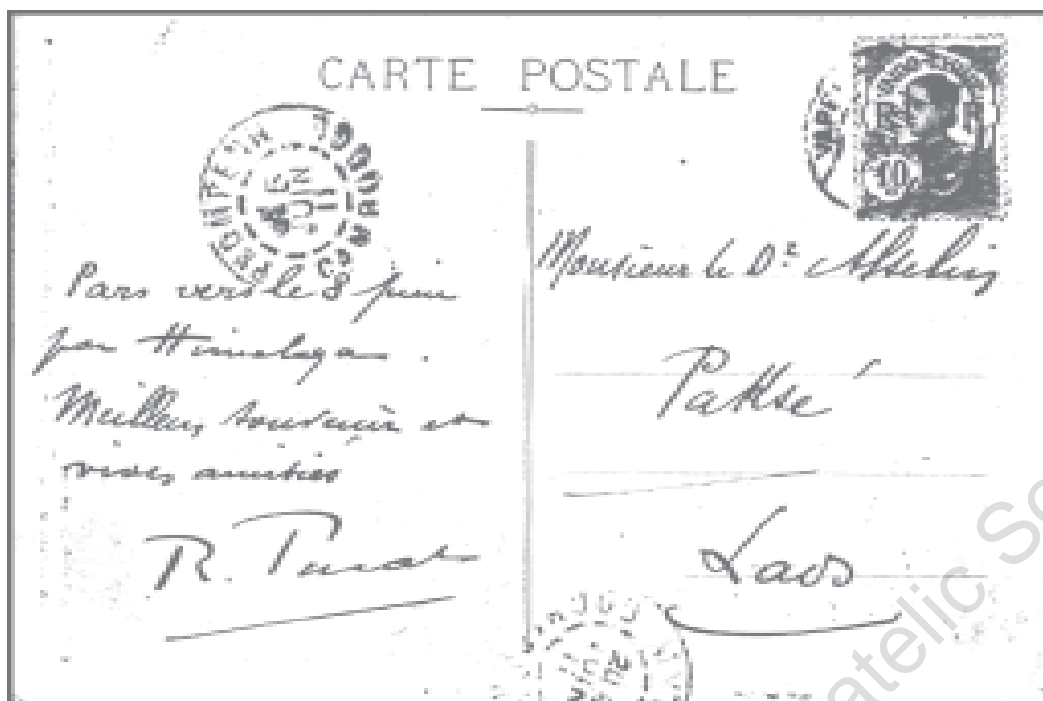 CARTE POSTALE
PNOMPENH
CAMBODGE
10
Pars vers le 8 juin
par Himalaya.
Meilleurs souvenirs et
vives amitiés
R.
Monsieur le Dr
Paksé
Laos
atelic So